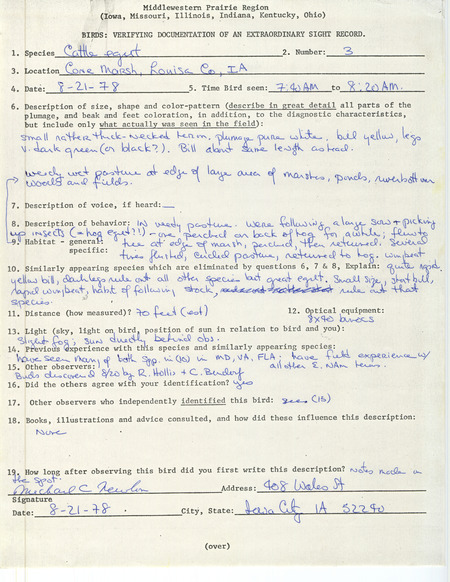 Middlewestern Prairie Region
(Iowa, Missouri, Illinois, Indiana, Kentucky, Ohio)
BIRDS: VERIFYING DOCUMENTATION OF AN EXTRAORDINARY SIGHT RECORD.
1. Species Cattle egret 2. Number: 3
3. Location Cone Marsh, Louisa Co., IA
4. Date: 8-21-78 5. Time Bird seen: 7:41 AM to 8:20 AM.
6. Description of size, shape and color-pattern (describe in great detail all parts of the
plumage, and beak and feet coloration, in addition, to the diagnostic characteristics,
but include only what actually was seen in the field):
small rather thick-necked heron. plumage pure white. bill yellow, legs
v. dark green (or black?). Bill about same length as head.
weedy wet pasture at edge of large area of marshes, ponds, riverbottom
woods and fields.
7. Description of voice, if heard: —
8. Description of behavior: in weedy pasture. were following a large sow + picking
up insects (= hog egret?!) - one perched on back of hog for awhile; flew to
9. Habitat - general: tree at edge of marsh, perched, then returned. Several
specific: times flushed, circled pasture, returned to hog. wingbeat
10. Similarly appearing species which are eliminated by questions 6, 7 & 8, Explain: quite rapid.
yellow bill, dark legs rule out all other species but great egret. Small size, short bill,
rapid wingbeat, habit of following stock, rule out that
species.
11. Distance (how measured)? 70 feet (est) 12. Optical equipment:
13. Light (sky, light on bird, position of sun in relation to bird and you): 8x40 binocs
slight fog; sun directly behind obs.
14. Previous experience with this species and similarly appearing species:
have seen many of both spp. in MD, VA, FLA; have field experience w/
15. Other observers: all other E. NAm herons.
Birds discovered 8/20 by R. Hollis + C. Bendorf
16. Did the others agree with your identification? yes
17. Other observers who independently identified this bird: yes (15)
18. Books, illustrations and advice consulted, and how did these influence this description:
None
19. How long after observing this bird did you first write this description? Notes made on
the spot.
Michael C. Newlon Address: 408 Wales St
Signature
Date: 8-21-78 City, State: Iowa City IA 52240
(over)